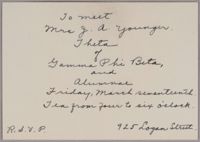 To meet
Mrs J. A. Younger.
Theta
of
Gamma Phi Beta,
and
Alumnae
Friday, March seventeenth
Tea from four to six o'clock.
R.S.V.P.
925 Logan Street